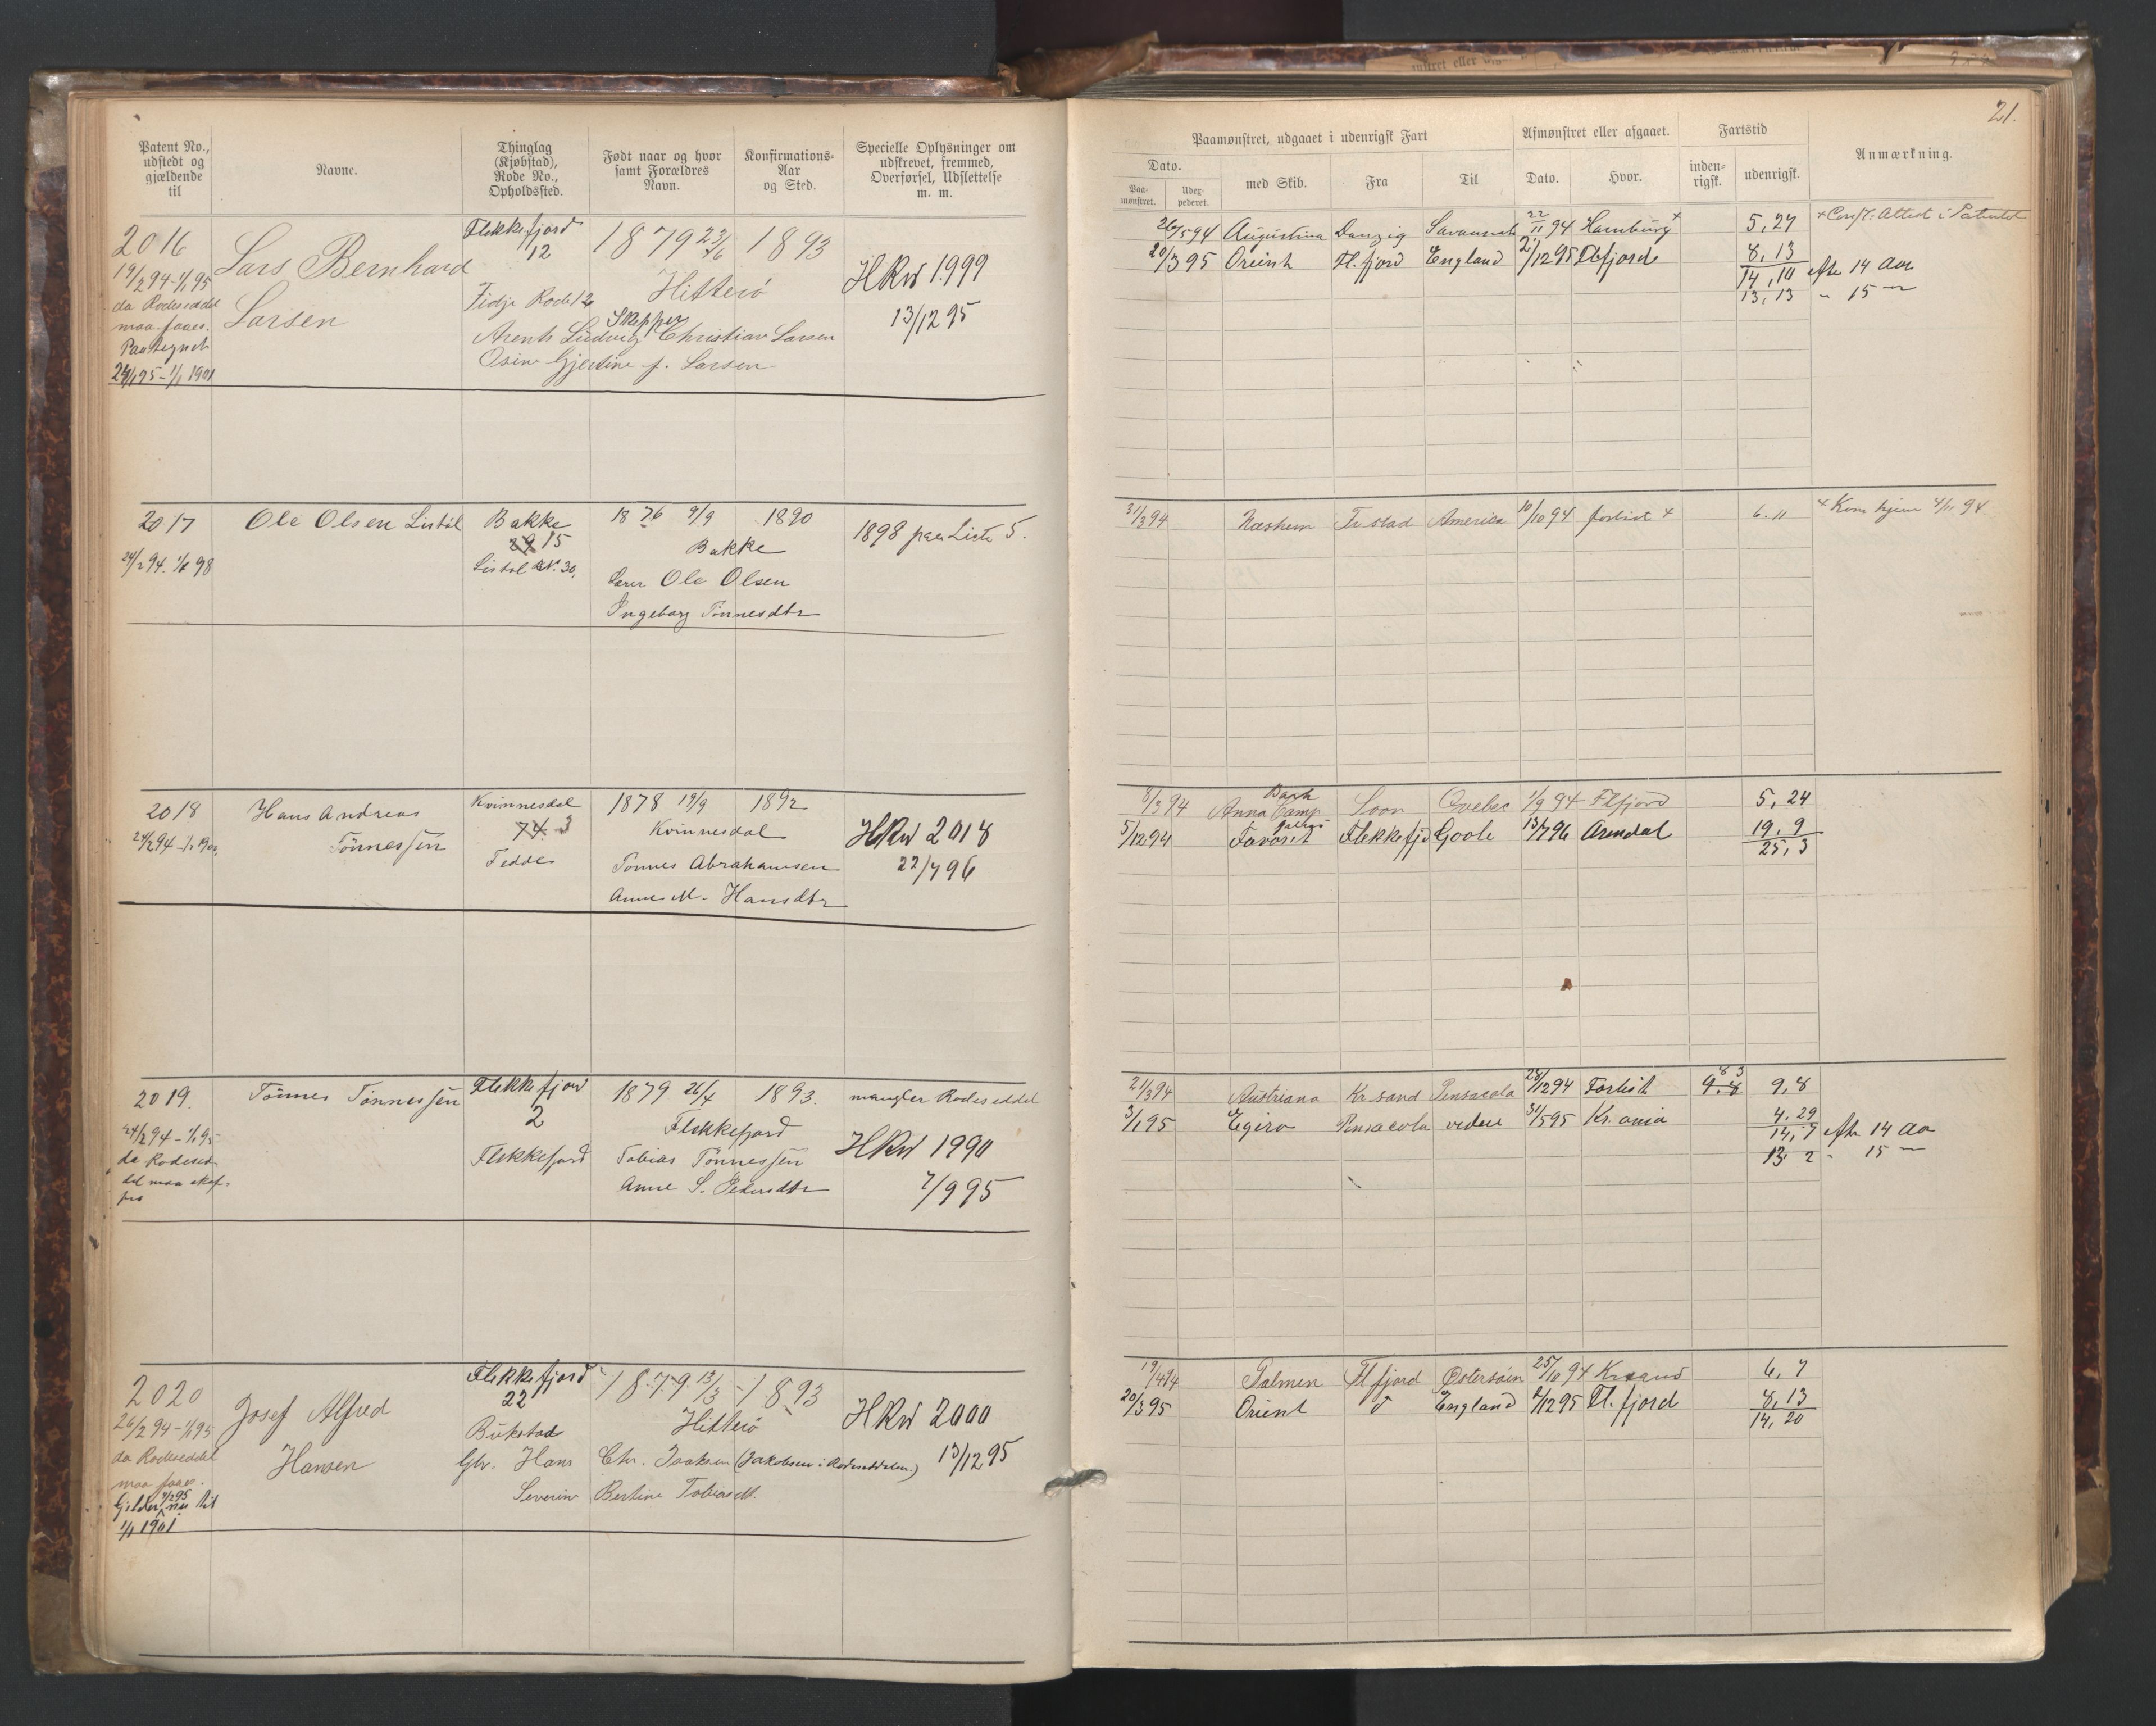 21.
Patent No., udstedt og gjældende til
Navne.
Thinglag (Kjøbstad), Rode No., Opholdssted.
Født naar og hvor samt Forældres Navn.
Konfirmations-Aar og Sted.
Specielle Oplysninger om udskrevet, fremmed, Overførsel, Udslettelse m. m.
Paamønstret, udgaaet i udenrigsk Fart
Afmønstret eller afgaaet.
Fartstid
Anmærkning.
Dato.
Paa-mønstret.
Udex-pederet.
med Skib.
Fra
Til
Dato.
Hvor.
inden-rigsk.
udenrigsk.
2016
19/2 94 - 1/1 95
da Rodeseddel
maa faaes.
Paategnet
24/1 95 - 1/1 1901
Lars Bernhard
Larsen
Flekkefjord
12
Fidje Rode 12
1879 23/6 1893
Hitterö
Skipper
Arent Ludvig Christian Larsen
Osine Gjertine f. Larsen
HRW 1999
13/12 95
26/5 94 Augustina Danzig Savannah 22/11 94 Hamburg + 5,27
20/3 95 Orient Fl.fjord England 2/12 95 Flfjord 8,13
14,10 efter 14 Aar
13,13 " 15 "
2017
24/2 94. 1/1 98
Ole Olsen Listöl
Bakke
29 15
Listöl RN. 30,
1876 9/9 1890
Bakke
Ole Olsen
Ingeborg Tönnesdtr
1898 paa Liste 5.
31/3 94 Næshem Fr.stad America 10/10 94 forlist + 6.11 + Kom hjem 4/11 94
2018
Hans Andreas
Tönnessen
Kvinnesdal
74. 3
Fedde
1878 19/9 1892
Kvinnesdal
Tönnes Abrahamsen
Anne M. Hansdtr
HRW 2018
22/7 96
Bark
8/3 94 Anna Camp Soon Qvebec 1/9 94 Flfjord 5,24
5/12 94 Favorit Flekkefjd Goole 13/7 96 Arendal 19,9
25,3
2019.
24/2 94 - 1/1 95
da Rodesed-
del maa skaf-
fes
Tönnes Tönnessen
Flekkefjord
2
Flekkefjord
1879 26/4 1893.
Flekkefjord
Tobias Tönnessen
Anne S. Pedersdtr
mangler Rodeseddel
HRW 1990
7/9 95
21/3 94 Austriana Kr.sand Pensacola 28/12 94 Forlist 9.8 9,8
3/1 95 Egero Pensacola videre 31/5 95 Kr.ania 4.29
14,7 efter 14 Aar
13,2 " 15 "
2020
26/2 94 - 1/1 95
da Rodeseddel
maa faaes.
Gjelder nu til
1/1 1901
Josef Alfred
Hansen
Flekkefjord
22
Bukstad
1879 13/3 1893
Hitterö
Gbr. Hans Chr. Isaksen (Jakobsen i Rodeseddelen)
Severine Bertine Tobiasdt.
HRW 2000
13/12 95
19/4 94 Palmen Fl fjord Østersöin 25/10 94 Krsand 6,7
20/3 95 Orient do England 2/12 95 Fl. fjord 8,13
14,20